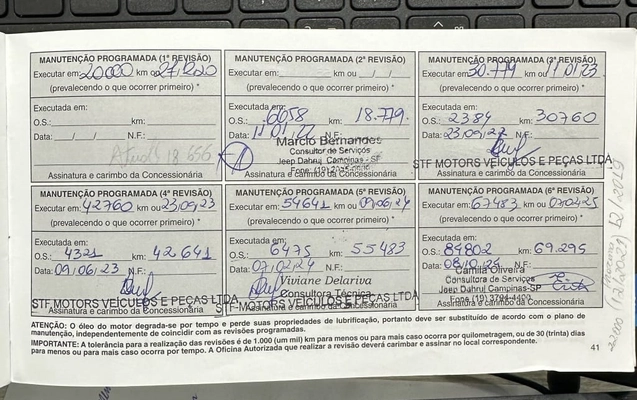 MANUTENÇÃO PROGRAMADA (1ª REVISÃO)
Executar em: 20000 km ou
(prevalecendo o que ocorrer primeiro) *
Executada em:
O.S.: km:
Data: / / N.F.:
18 656
Assinatura e carimbo da Concessionária
MANUTENÇÃO PROGRAMADA (2ª REVISÃO)
Executar em: km ou / /
(prevalecendo o que ocorrer primeiro) *
Executada em:
O.S.: 6058 km: 18.779
Data: 11 01 22 N.F.:
Marcio Bernandes
Consultor de Serviços
Jeep Dahruj Campinas - SP
Assinatura e carimbo da Concessionária
MANUTENÇÃO PROGRAMADA (3ª REVISÃO)
Executar em: 30.779 km ou 11 01 23
(prevalecendo o que ocorrer primeiro) *
Executada em:
O.S.: 2384 km: 30760
Data: 23 09 22 N.F.:
STF MOTORS VEÍCULOS E PEÇAS LTDA
Assinatura e carimbo da Concessionária
MANUTENÇÃO PROGRAMADA (4ª REVISÃO)
Executar em: 42760 km ou 23/09/23
(prevalecendo o que ocorrer primeiro) *
Executada em:
O.S.: 4321 km: 42641
Data: 09/06/23 N.F.:
STF MOTORS VEÍCULOS E PEÇAS LTDA
Assinatura e carimbo da Concessionária
MANUTENÇÃO PROGRAMADA (5ª REVISÃO)
Executar em: 54641 km ou 09/06/24
(prevalecendo o que ocorrer primeiro) *
Executada em:
O.S.: 6475 km: 55483
Data: 07/02/24 N.F.:
Viviane Delariva
Consultora Técnica
STF-MOTORS VEÍCULOS E PEÇAS LTDA
Assinatura e carimbo da Concessionária
MANUTENÇÃO PROGRAMADA (6ª REVISÃO)
Executar em: 67483 km ou 07/02/25
(prevalecendo o que ocorrer primeiro) *
Executada em:
O.S.: 84802 km: 69.295
Data: 08/10/24 N.F.:
Camila Oliveira
Consultora de Serviços
Jeep Dahruj Campinas-SP
Fone (19) 3794-4400
Assinatura e carimbo da Concessionária
ATENÇÃO: O óleo do motor degrada-se por tempo e perde suas propriedades de lubrificação, portanto deve ser substituído de acordo com o plano de
manutenção, independentemente de coincidir com as revisões programadas.
IMPORTANTE: A tolerância para a realização das revisões é de 1.000 (um mil) km para menos ou para mais caso ocorra por quilometragem, ou de 30 (trinta) dias
para menos ou para mais caso ocorra por tempo. A Oficina Autorizada que realizar a revisão deverá carimbar e assinar no local correspondente.
41